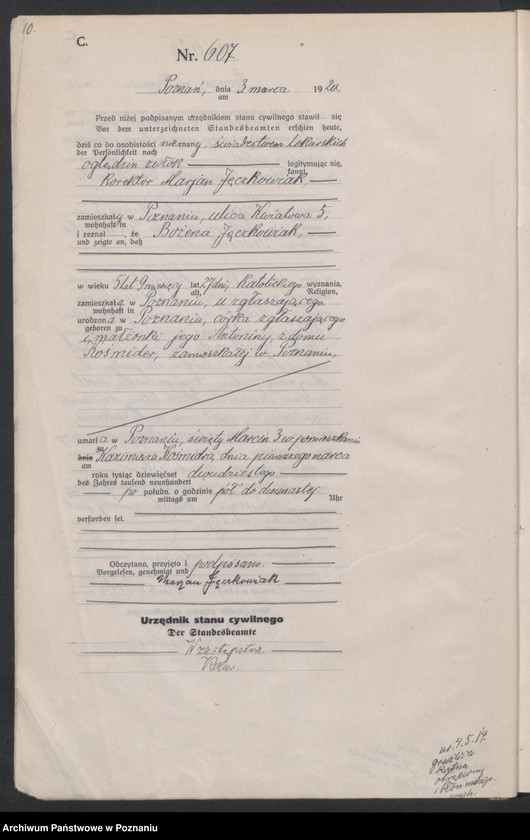 10.
C.
Nr. 607
Poznań, dnia 3 marca 1920.
am
Przed niżej podpisanym urzędnikiem stanu cywilnego stawił się
Vor dem unterzeichneten Standesbeamten erschien heute,
dziś co do osobistości nieznany, świadectwem lekarskich
der Persönlichkeit nach
oględzin zwłok legitymując się,
kannt,
Korektor Marjan Jęczkowiak,
zamieszkały w Poznaniu, ulica Kwiatowa 5,
wohnhaft in
i zeznał, że Bożena Jęczkowiak,
und zeigte an, daß
w wieku 5 lat 9 miesięcy lat, 27 dni, katolickiego wyznania,
alt, Religion,
zamieszkała w Poznaniu, u zgłaszającego
wohnhaft in
urodzona w Poznaniu, córka zgłaszającego
geboren zu
i małżonki jego Antoniny, z domu
Kośmider, zamieszkałej w Poznaniu,
umarła w Poznaniu, święty Marcin 3 w pomieszkaniu
zu
dnia Kazimierza Kośmidra, dnia pierwszego marca
am
roku tysiąc dziewięćset dwudziestego
des Jahres tausend neunhundert
po połudn. o godzinie pół do dwunastej
mittags um Uhr
verstorben sei.
Odczytano, przyjęto i podpisano.
Vorgelesen, genehmigt und
Marjan Jęczkowiak
Urzędnik stanu cywilnego
Der Standesbeamte
W zastępstwie
ur. 4.5.14.
gruźlica
Archiwum Państwowe w Poznaniu